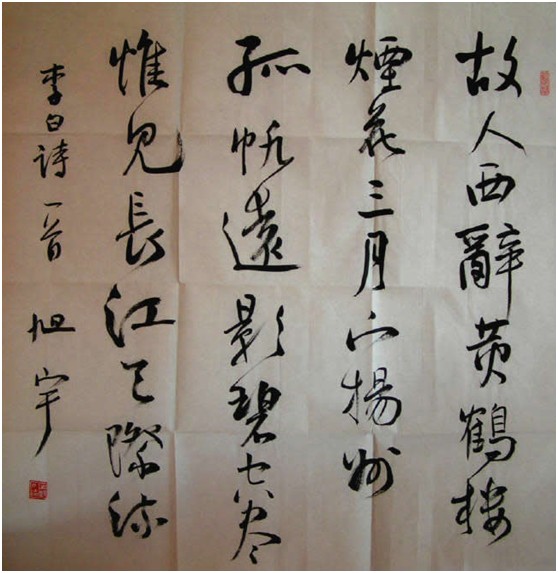 故人西辭黄鶴樓
煙花三月下揚州
孤帆遠影碧空盡
惟見長江天際流
李白詩一首 旭宇